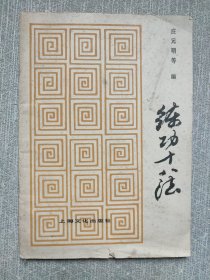 庄元明等 编
练功十八法
上海文化出版社